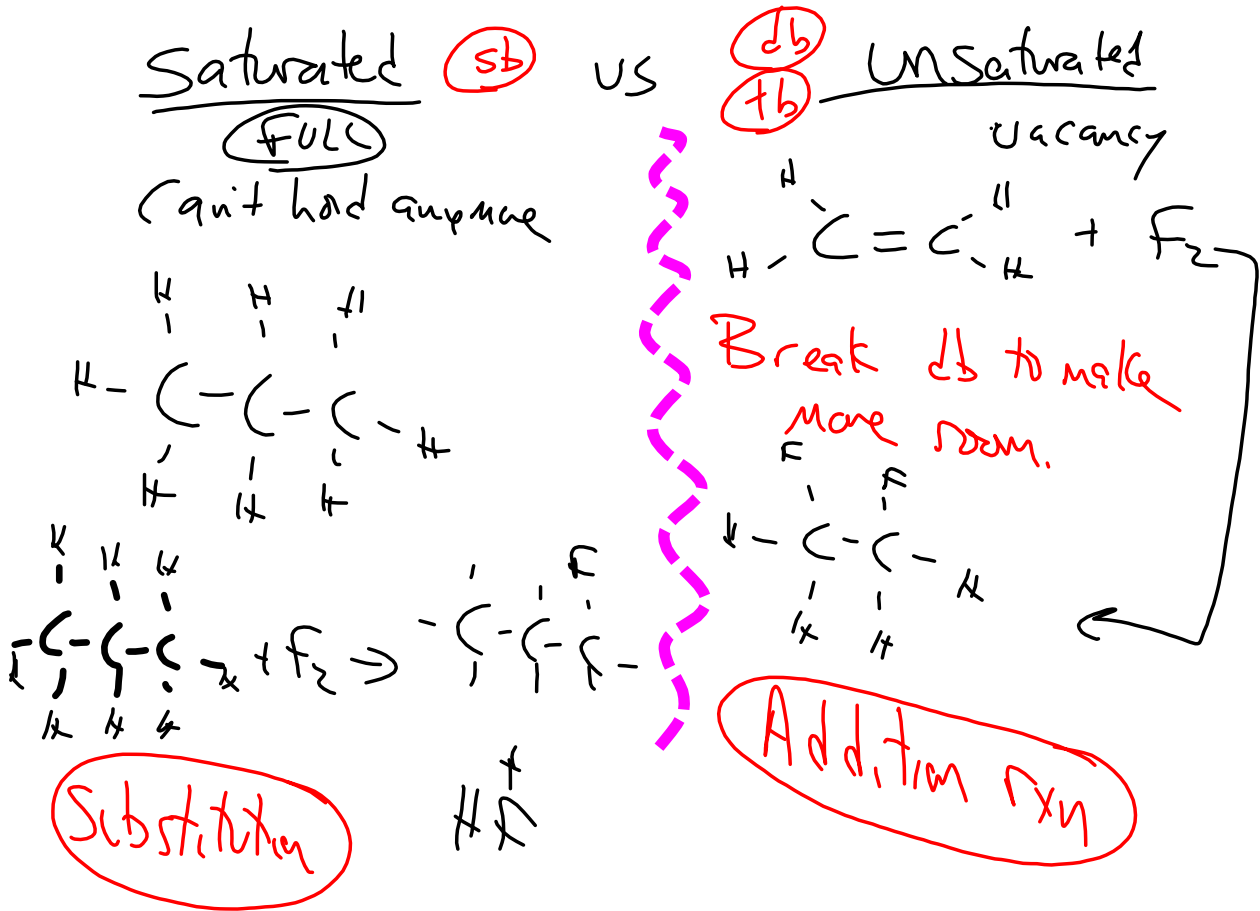 Saturated sb vs db tb Unsaturated
FULL
Can't hold anymore
vacancy
H H
C = C + F2
H H
Break db to make
more room.
H H H
H - C - C - C - H
H H H
F F
H - C - C - H
H H
H H H
- C - C - C - H + F2 → - C - C - C -
H H H
F
+
HF
Substitution
Addition rxn